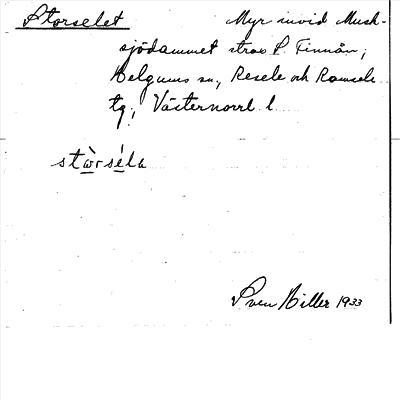 Storselet Myr invid Musk-
sjödammet strax S. Finnån,
Helgums sn, Resele och Ramsele
tg, Västernorrl l
stòrséla
Sven Hiller 1933